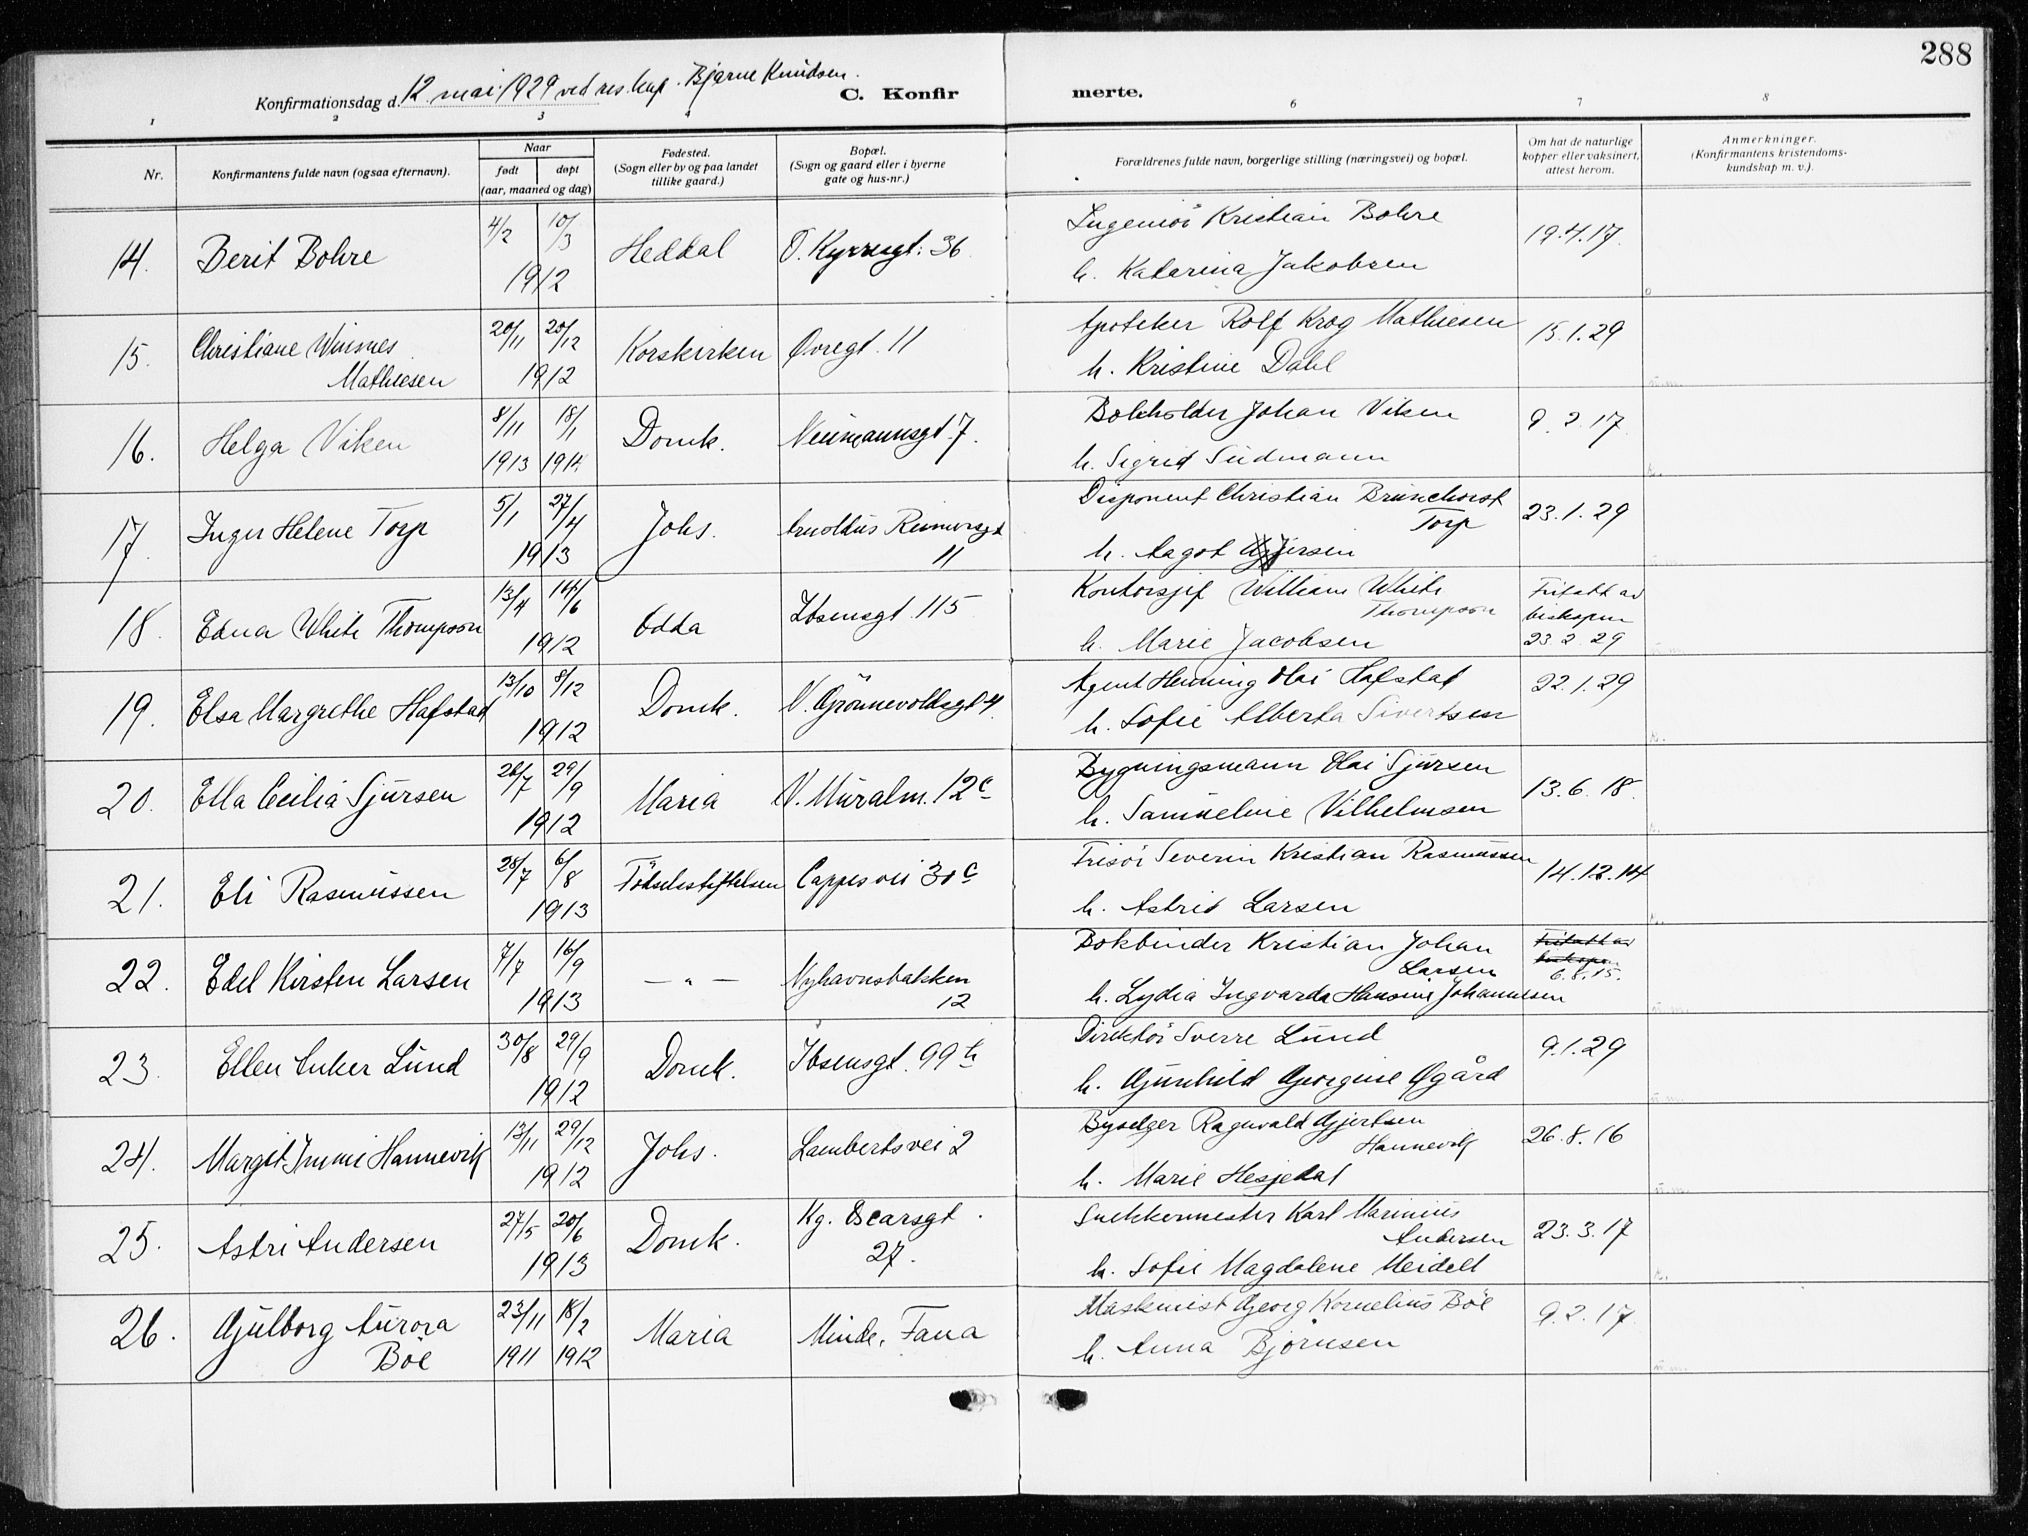 288
Konfirmationsdag d. 12. mai 1929 ved res. kap. Bjarne Knudsen.
C. Konfir merte.
1 2 3 4 6 7 8
Nr.
Konfirmantens fulde navn (ogsaa efternavn).
Naar
født døpt
(aar, maaned og dag)
Fødested.
(Sogn eller by og paa landet
tillike gaard.)
Bopæl.
(Sogn og gaard eller i byerne
gate og hus-nr.)
Forældrenes fulde navn, borgerlige stilling (næringsvei) og bopæl.
Om hat de naturlige
kopper eller vaksinert,
attest herom.
Anmerkninger.
(Konfirmantens kristendoms-
kundskap m. v.).
14. Berit Bohre 4/2 10/3 1912 Heddal O. Kyrresgt. 36 Ingeniör Kristian Bohre 19.4.17.
h. Katarina Jakobsen
15. Christiane Winsnes 20/11 20/12 Korskirken Øvregt. 11 Apoteker Rolf Krog Mathiesen 15.1.29
Mathiesen 1912 h. Kristine Dahl
16. Helga Viken 8/11 18/1 Domk. Neumannsgt. 7. Bokholder Johan Viken 9.2.17.
1913 1914 h. Sigrid Südmann
17. Inger Helene Torp 5/1 27/4 Johs. Arnoldus Reimersgt Disponent Christian Brunchorst 23.1.29
Torp
1913 11 h. Aagot Gjersen
18. Edna White Thompson 13/4 14/6 Odda Ibsensgt. 115 Kontorsjef William White Fritatt av
Thompson biskopen
1912 h. Marie Jacobsen 23.2.29
19. Elsa Margrethe Hafstad 13/10 8/12 Domk. V. Grönnevoldsgt 4. Agent Henning Olai Hafstad 22.1.29
1912 h. Sofie Alberta Sivertsen
20. Ella Cecilia Sjursen 26/7 29/9 Maria V. Muralm. 12c Bygningsmann Olai Sjursen 13.6.18.
1912 h. Samueline Vilhelmsen
21. Eli Rasmussen 28/7 6/8 Födselsstiftelsen Cappes vei 30c Frisör Severin Kristian Rasmussen 14.12.14
1913 h. Astrid Larsen
22. Edel Kirsten Larsen 7/7 16/9 — „ — Nyhavnsbakken Bokbinder Kristian Johan Fritatt av
Larsen biskopen
12 6.8.15.
1913 h. Lydia Ingvarda Hansine Johannesen
23. Ellen Anker Lund 30/8 29/9 Domk. Ibsensgt. 99 b Direktör Sverre Lund 9.1.29
1912 h. Gunhild Georgine Øgård
24. Margit Immi Hannevik 13/11 29/12 Johs. Lambertsvei 2 Byselger Ragnvald Gjertsen 26.8.16
Hannevik
1912 h. Marie Hesjedal
25. Astri Andersen 27/5 20/6 Domk. Kg. Oscarsgt. Snekkermester Karl Marinius 23.3.17
Andersen
1913 27. h. Sofie Magdalene Meidell
26. Gulborg Aurora 23/11 18/2 Maria Minde, Fana Maskinist Georg Kornelius Böe 9.2.17.
Böe 1911 1912 h. Anna Björnsen